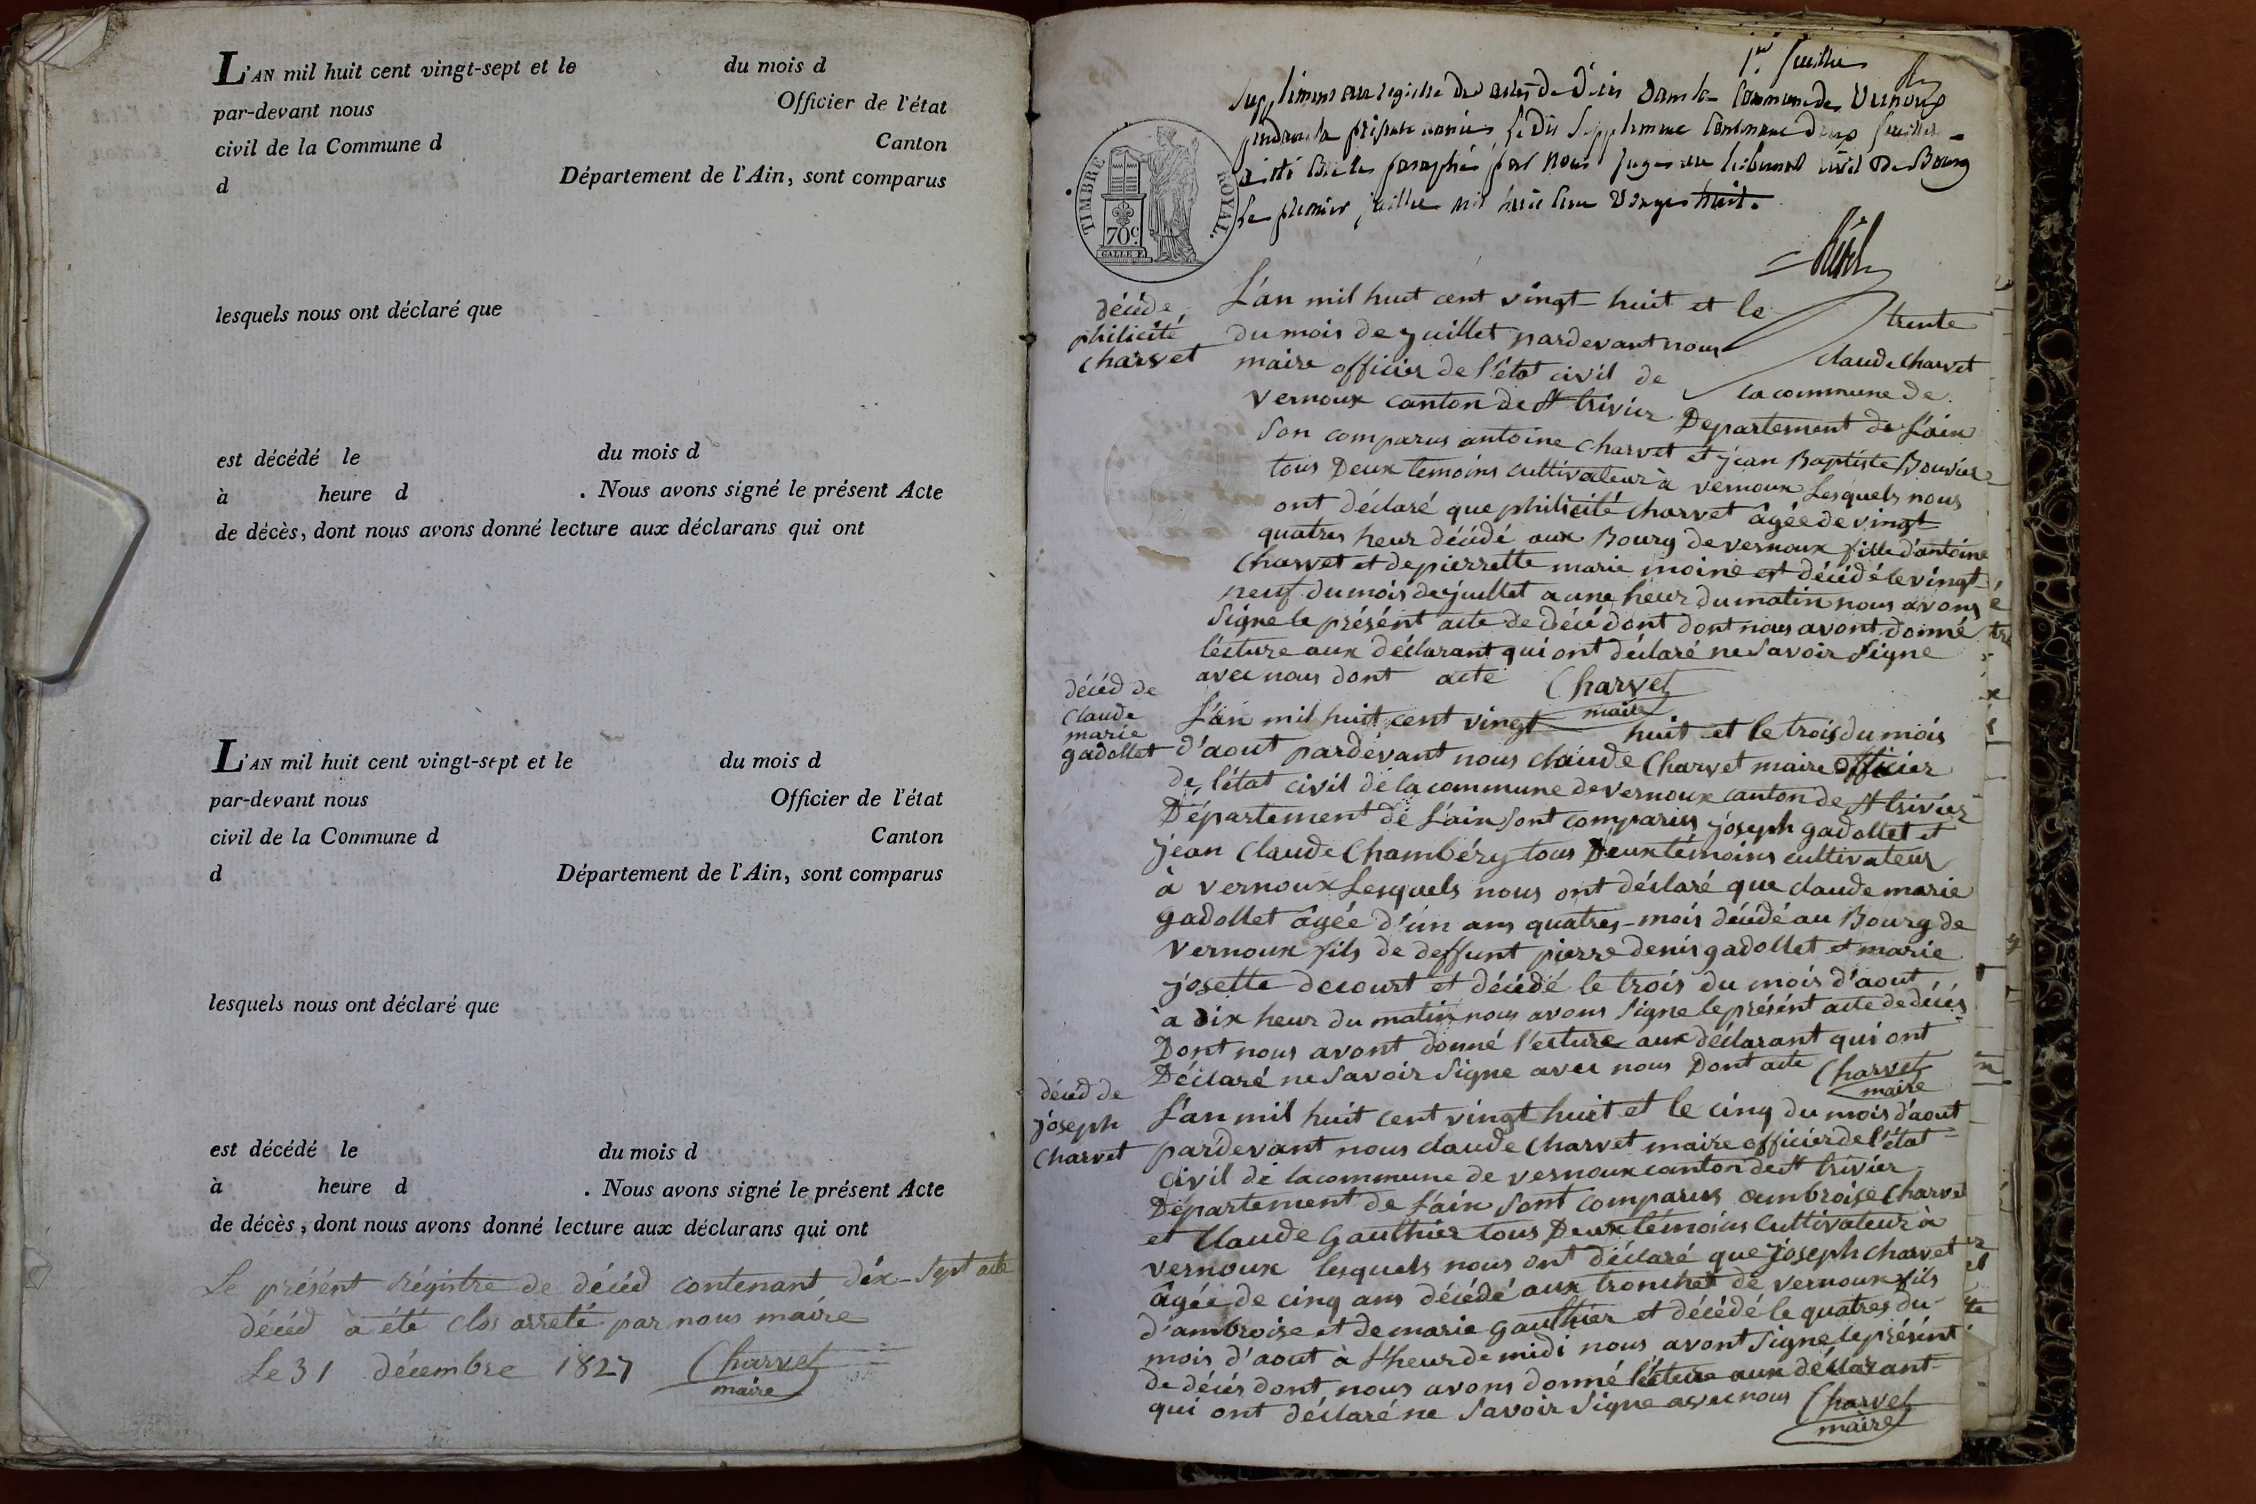 L'AN mil huit cent vingt-sept et le du mois d
par-devant nous Officier de l'état
civil de la Commune d Canton
d Département de l'Ain, sont comparus
lesquels nous ont déclaré que
est décédé le du mois d
à heure d . Nous avons signé le présent Acte
de décès, dont nous avons donné lecture aux déclarans qui ont
L'AN mil huit cent vingt-sept et le du mois d
par-devant nous Officier de l'état
civil de la Commune d Canton
d Département de l'Ain, sont comparus
lesquels nous ont déclaré que
est décédé le du mois d
à heure d . Nous avons signé le présent Acte
de décès, dont nous avons donné lecture aux déclarans qui ont
Le présént régistre de décéd contenant dix-sept acte
décéd à été clos arreté par nous maire
Le 31 décembre 1827 Charvet
maire
1er feuillet
Supplément au registre des actes de décès dans la commune de Vernoux
pendant la présente année le dit supplément contenant deux feuillets
a été coté et paraphé par nous juge au tribunal civil de Bourg
le premier juillet mil huit cent vingt huit.
TIMBRE ROYAL.
70c
GALLE F.
décéde
philicité
Charvet
L'an mil huit cent vingt-huit et le trente
du mois de juillet pardevant nous claude Charvet
maire officier de l'état civil de la commune de
vernoux canton de st trivier Département de L'ain
son comparus antoine Charvet et jean Baptiste Bouvier
tous Deux temoins cultivateur à vernoux Lesquels nous
ont déclaré que philicité charvet âgée de vingt
quatres heur décédé aux Bourg de vernoux fille d'antoine
Charvet et de pierrette marie moine est décédé le vingt-
neuf du mois de juillet a une heur du matin nous avons
Signe le présént acte de décé dont dont nous avont donné
lécture aux déclarant qui ont déclaré ne Savoir Signe
avec nous dont acte Charvet
maire
décéd de
Claude
marie
gadollet
L'an mil huit cent vingt huit et le trois du mois
d'aout pardevant nous claude Charvet maire officier
de l'état civil de la commune de vernoux canton de st trivier
Département de L'ain Sont comparus joseph gadollet et
jean Claude Chambéry tous Deux témoins cultivateur
à vernoux Lesquels nous ont déclaré que claude marie
gadollet âgée d'un ans quatres-mois décédé au Bourg de
vernoux fils de deffunt pierre denis gadollet et marie
josette decourt et décédé le trois du mois d'aout
a dix heur du matin nous avons Signe le présént acte de décés
Dont nous avont donné l'ecture aux déclarant qui ont
Déclaré ne Savoir Signe avec nous Dont acte Charvet
maire
décéd de
joseph
Charvet
L'an mil huit cent vingt huit et le cinq du mois d'aout
pardevant nous claude Charvet maire officier de l'état
civil de la commune de vernoux canton de st trivier
Département de L'ain Sont comparus ambroise Charvet
et Claude Gauthier tous Deux témoins Cultivateur à
vernoux lesquels nous ont déclaré que joseph charvet
âgée de cinq ans décédé aux tronchet de vernoux fils
d'ambroise et de marie gauthier et décédé le quatres du
mois d'aout à L'heur de midi nous avont Signe le présént
de décés dont nous avons donné lécture aux déclarant
qui ont déclaré ne Savoir Signe avec nous Charvet
maire